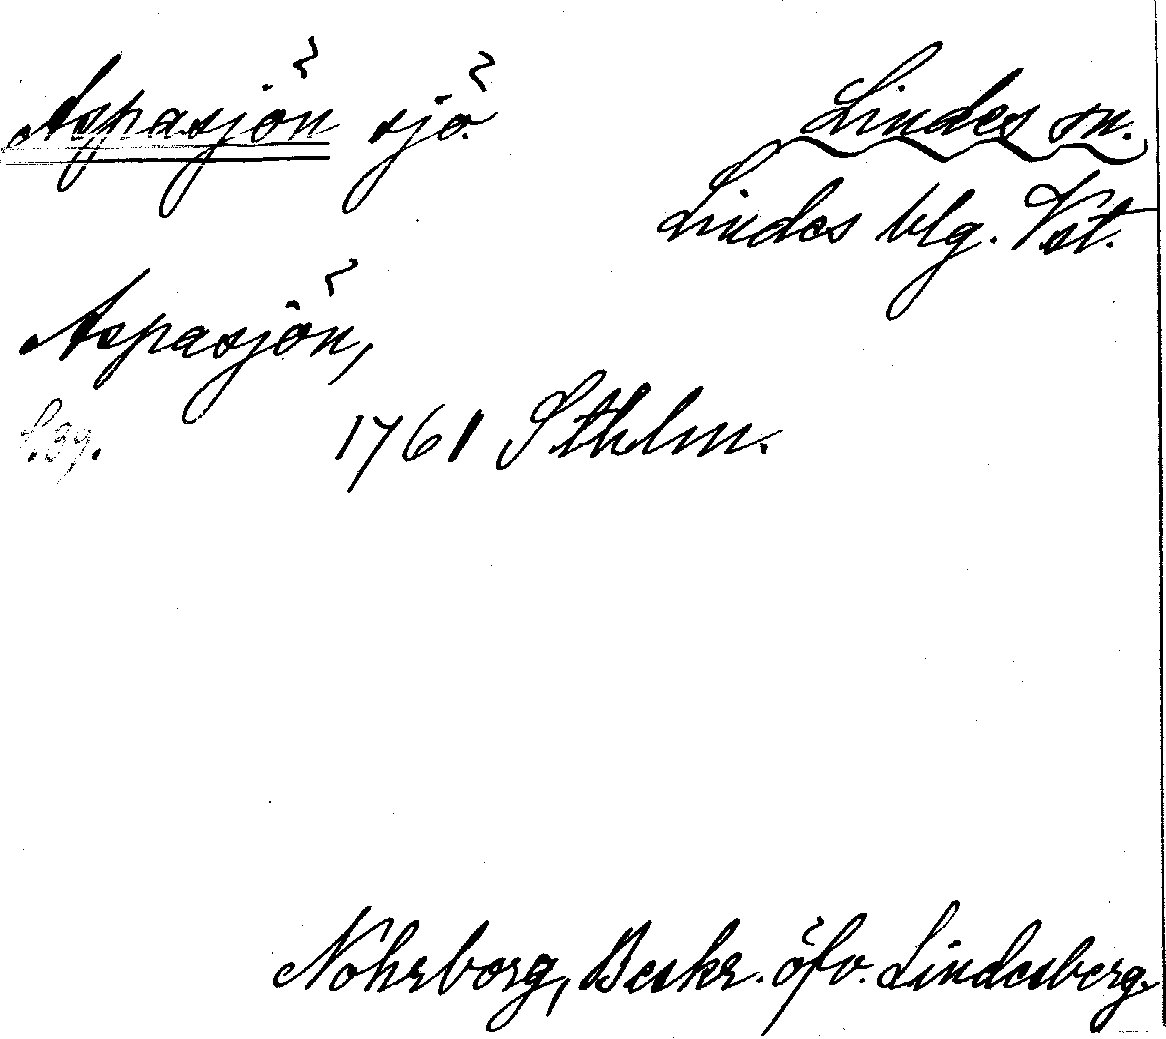 Aspasjön sjö. Lindes sn.
Lindes blg. Vst.
Aspasjön,
S. 39. 1761 Sthlm.
Nohrborg, Beskr. öfv. Lindesberg.